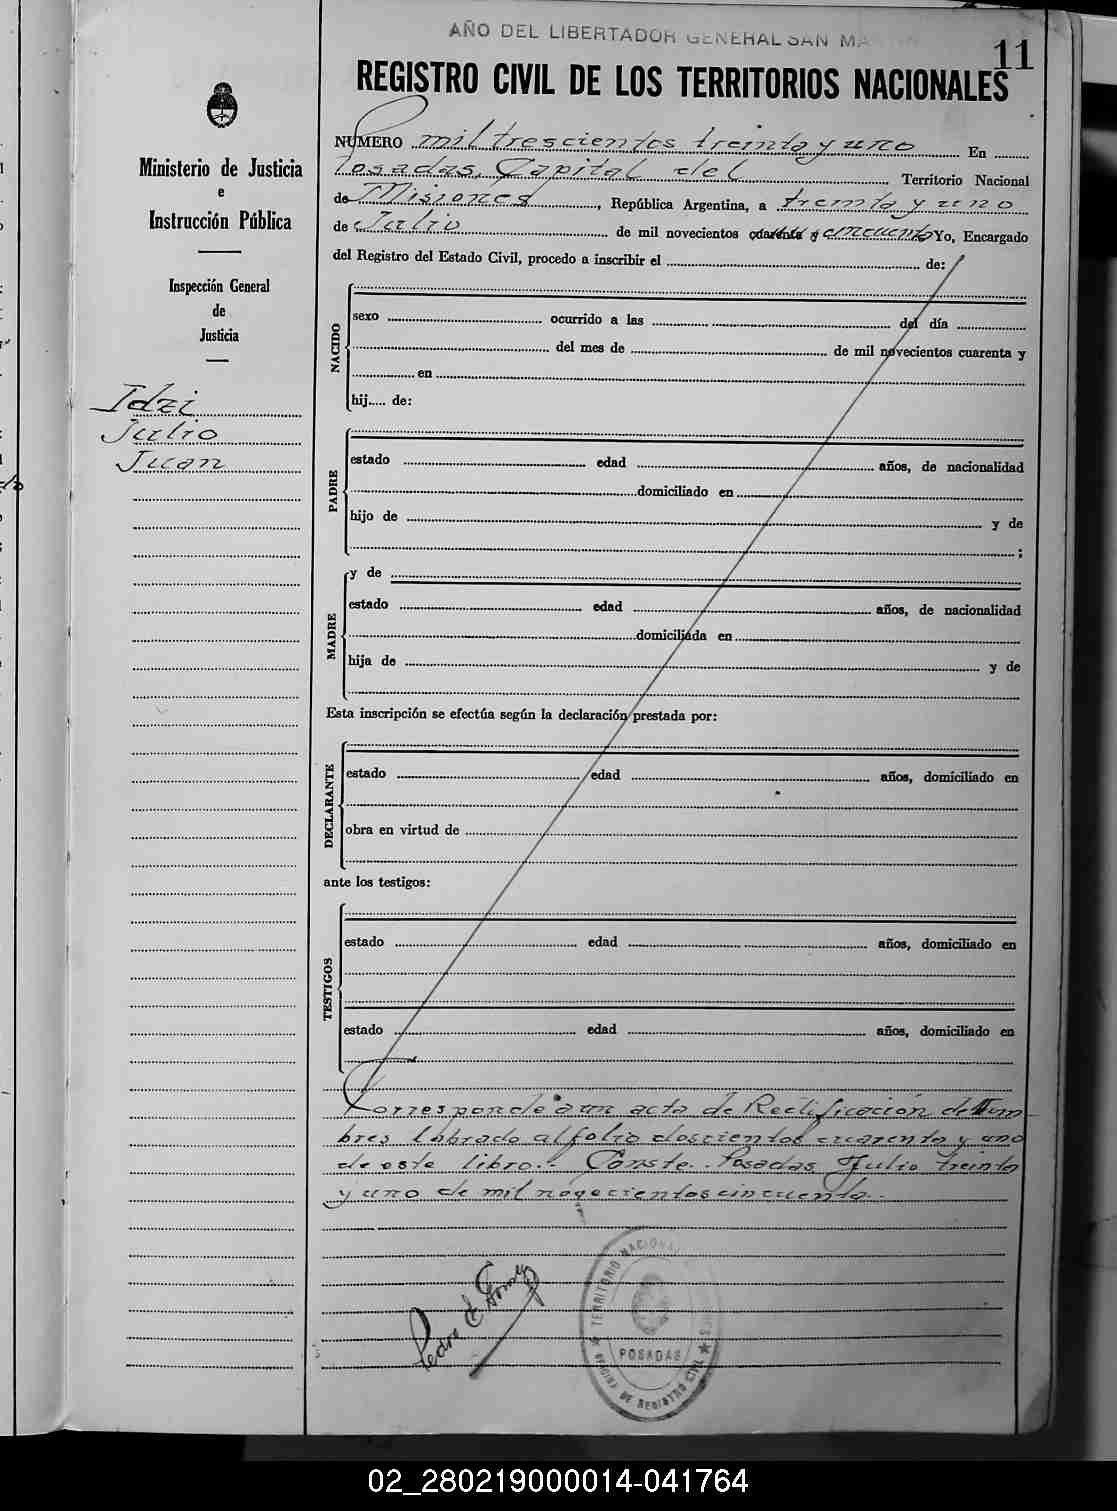 AÑO DEL LIBERTADOR GENERAL SAN
11
REGISTRO CIVIL DE LOS TERRITORIOS NACIONALES
Ministerio de Justicia
e
Instrucción Pública
Inspección General
de
Justicia
Idzi
Julio
Juan
NUMERO mil trescientos treinta y uno En
Posadas, Capital del Territorio Nacional
de Misiones, República Argentina, a treinta y uno
de Julio de mil novecientos cuarenta y cincuenta Yo, Encargado
del Registro del Estado Civil, procedo a inscribir el de:
NACIDO
sexo ocurrido a las del día
del mes de de mil novecientos cuarenta y
en
hij..... de:
PADRE
estado edad años, de nacionalidad
domiciliado en
hijo de y de
;
MADRE
y de
estado edad años, de nacionalidad
domiciliada en
hija de y de
Esta inscripción se efectúa según la declaración prestada por:
DECLARANTE
estado edad años, domiciliado en
obra en virtud de
ante los testigos:
TESTIGOS
estado edad años, domiciliado en
estado edad años, domiciliado en
Corresponde a un acta de Rectificación de Nom-
bres labrado al folio doscientos cuarenta y uno
de este libro.- Conste. Posadas, Julio treinta
y uno de mil novecientos cincuenta.-
Pedro E Gomez
TERRITORIO NACIONAL
POSADAS
OFICINA DE REGISTRO CIVIL
02_280219000014-041764